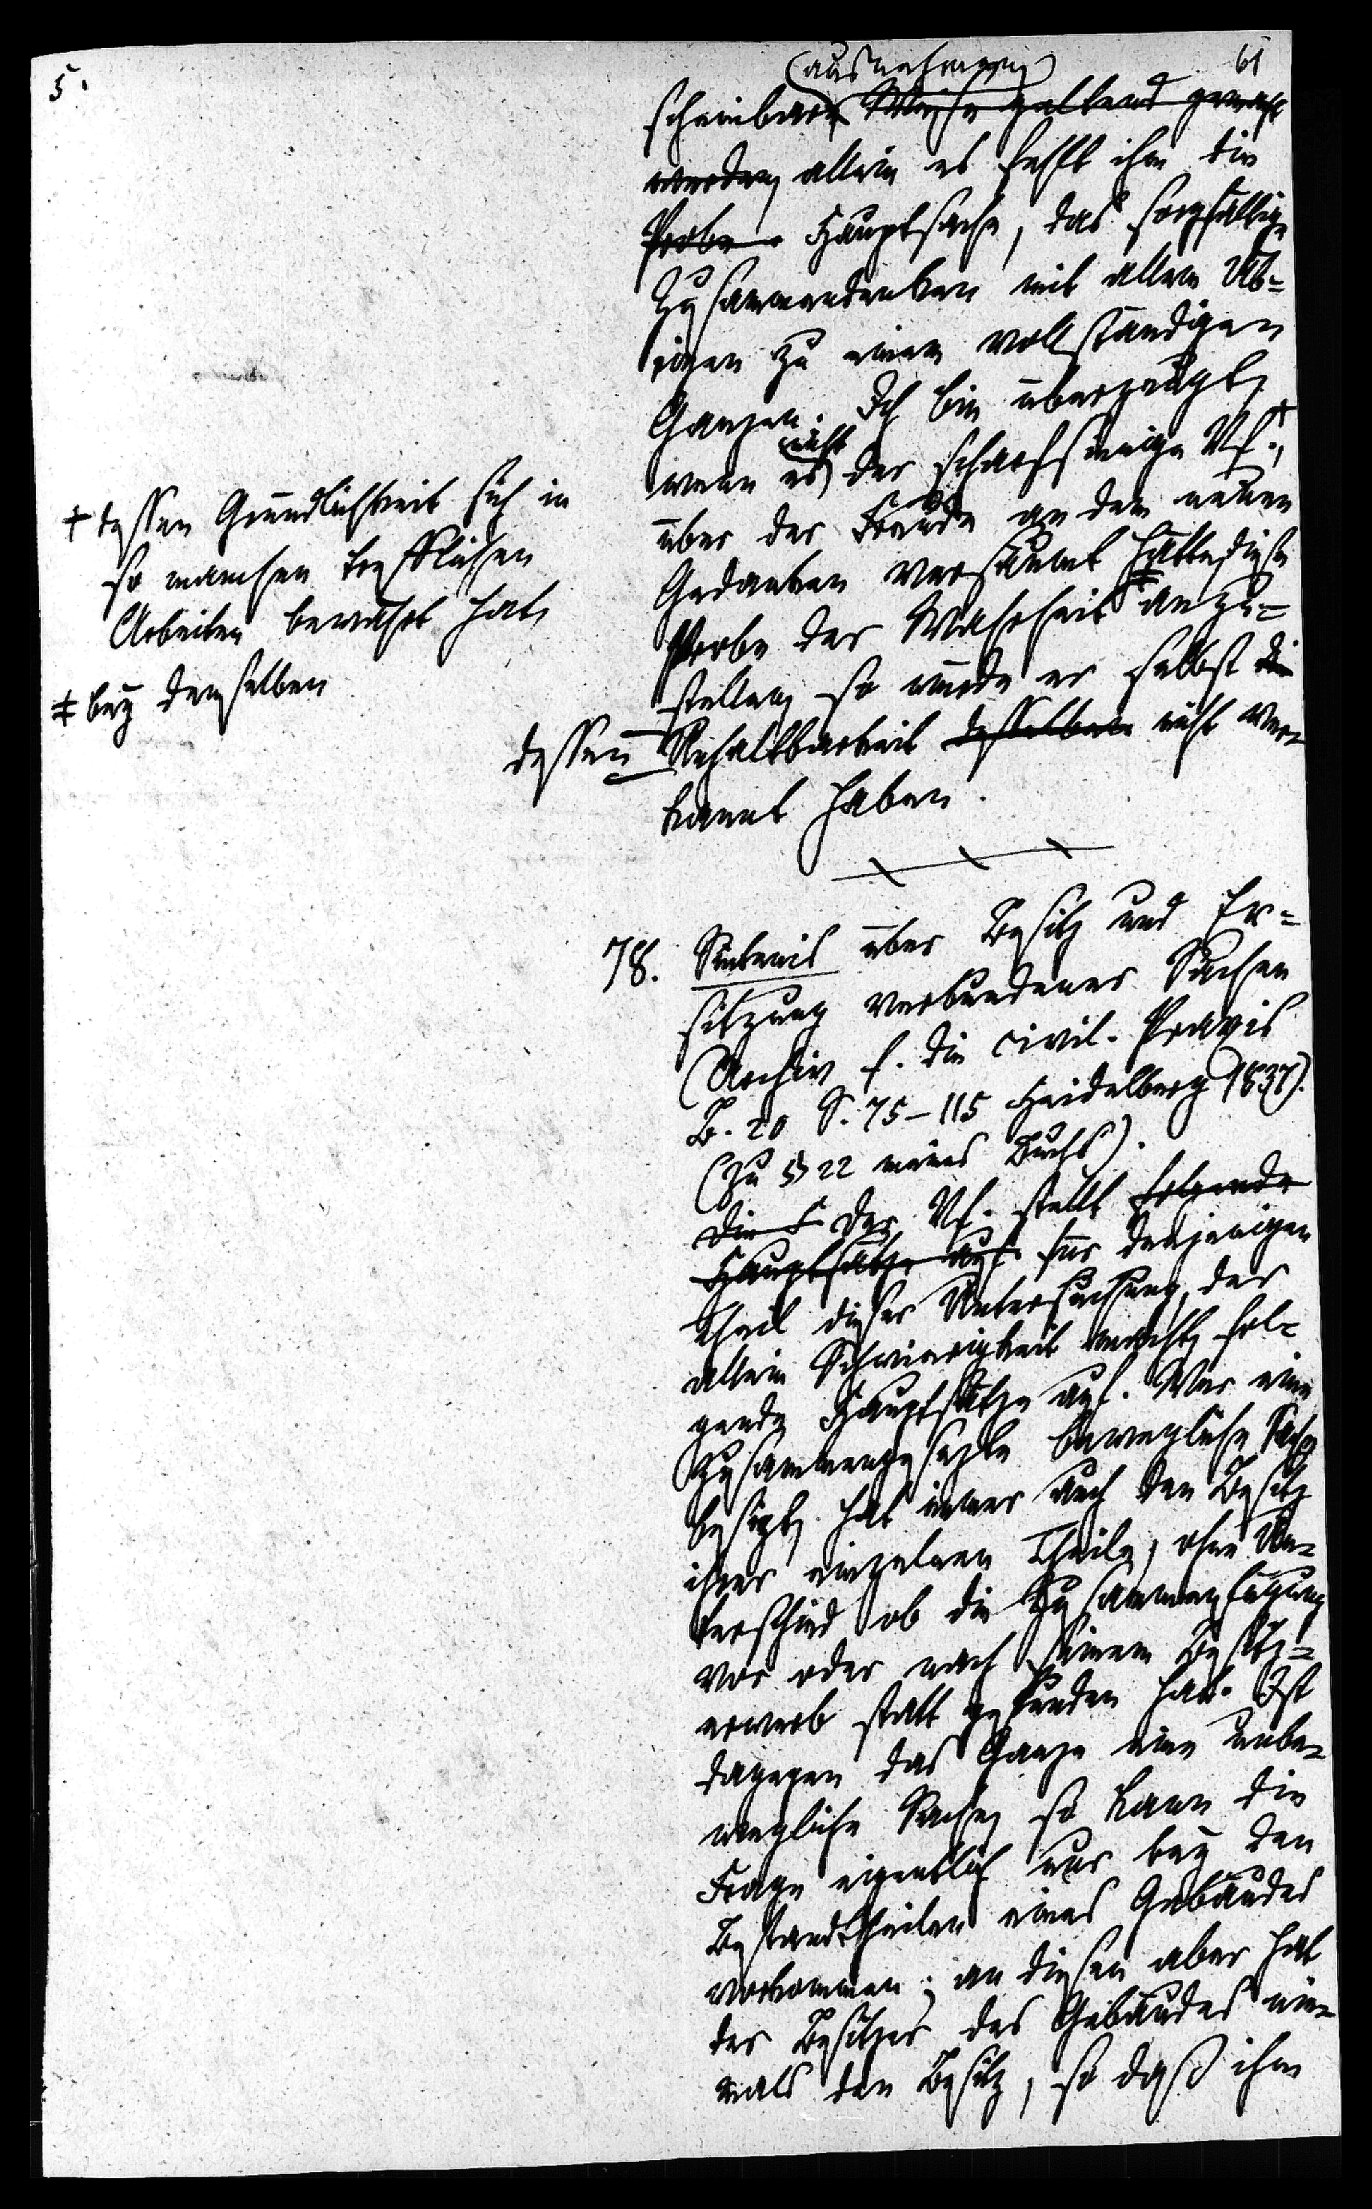 5.
61
(ausnehmen)
scheinbar Weise geltend gemacht
werden, allein es fehlt ihm die
Probe Hauptsache, das sorgfältige
Zusammendenken mit allem Üb=
rigen zu einem vollständigen
Ganzen. Ich bin überzeugt,
wenn es nicht der scharfsinnige Vf. +,
über der Freude an dem neuen
Gedanken versäumt hätte, diese
Probe der Wahrheit ‡ anzu=
stellen, so würde er selbst die
dessen Unhaltbarkeit desselben nicht ver=
kannt haben.
+ dessen Gründlichkeit sich in
so manchen trefflichen
Arbeiten bewährt hat,
‡ bey demselben
78. Sintenis über Besitz und Er=
sitzung verbundener Sachen
(Archiv f. die civil. Praxis
B. 20 S. 75–115 Heidelberg 1837).
(Zu § 22 meines Buchs).
Die Der Vf. stellt folgende
Hauptsätze auf für denjenigen
Theil dieser Untersuchung, der
allein Schwierigkeit macht, fol=
gende Hauptsätze auf. Wer eine
zusammengesetzte bewegliche Sache
besitzt, hat immer auch den Besitz
ihrer einzelnen Theile, ohne Un=
terschied ob die Zusammenfügung
vor oder nach seinem Besitz=
erwerb statt gefunden hat. Ist
dagegen das Ganze eine unbe=
wegliche Sache, so kann die
Frage eigentlich nur bey den
Bestandtheilen eines Gebäudes
vorkommen; an diesen aber hat
der Besitzer des Gebäudes nie=
mals den Besitz, so daß ihm